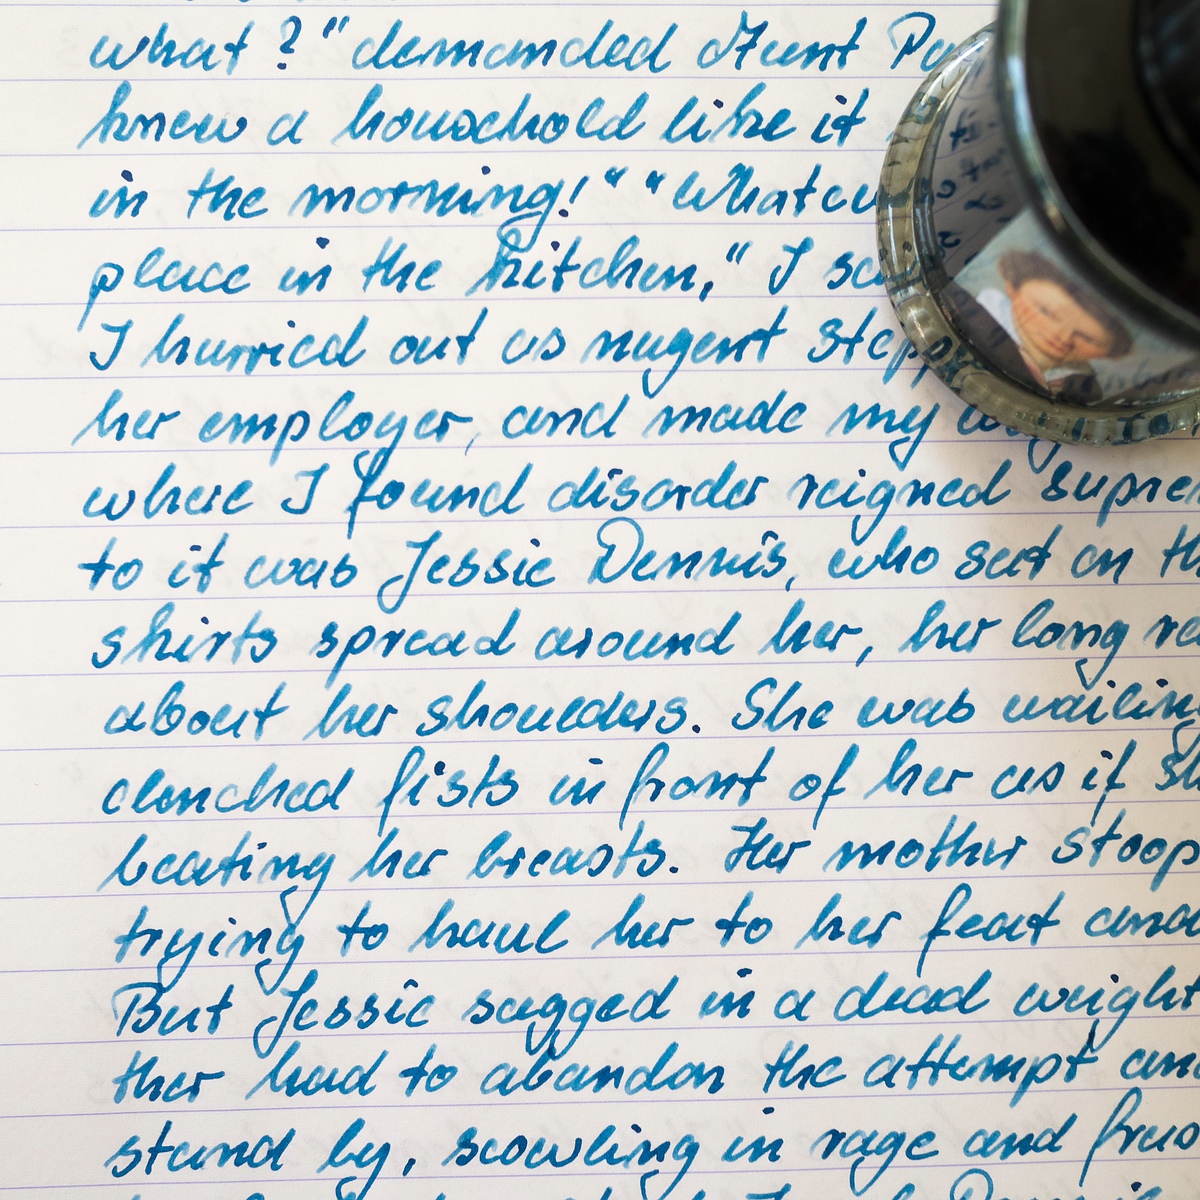 what?" demanded Aunt
knew a household like it
in the morning!" "Whatev
place in the kitchen," I sai
I hurried out as nugent stepp
her employer, and made my way to
where I found disorder reigned suprem
to it was Jessie Dennis, who sat on th
shirts spread around her, her long re
about her shoulders. She was wailing
clenched fists in front of her as if sh
beating her breasts. Her mother stoop
trying to haul her to her feat and
But Jessie sagged in a dead weight
ther had to abandon the attempt and
stand by, scowling in rage and frus